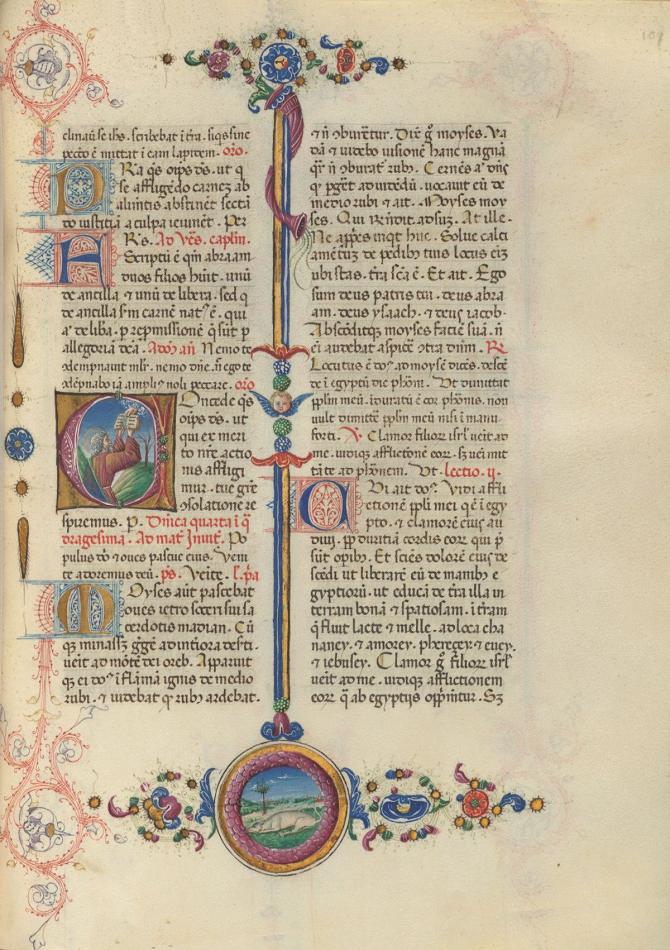 clinaūse ihs. scribebat i tra. siqs sine
pccto ē mittat i eam lapidem. oro.
PRa qs oips ds. ut q
se affligēdo carnez ab
alimtis abstinēt sectā
do iustitiā a culpa ieiunēt. Per
Ad vēs. caplm.
Scriptū ē qm abraam
duos filios hūit. unū
de ancilla & unū de libera. sed q
de ancilla sm carnē nat' ē. qui
a' de liba. p repmissionē q sūt p
allegoriā dca. Nemo te
9dempnauit mlr. nemo dne. n ego te
9dempnabo iā amplius noli peccare. oro
Concede qs
oips ds. ut
qui ex meri
to nre actio
nis affligi
mur. tue gre
9solatione re
spiremus. P. Dnica quarta i q
dragesima. Ad mat Inuit. Po
pulus dn & oues pascue eius. Veni
te adoremus deū. ps. Venite.
MOyses aūt pascebat
oues ietro soceri sui sa
cerdotis madian. Cū
qz minassz gge ad intiora desti.
ueit ad mōtē dei oreb. Apparuit
qz ei dos i flāma ignis de medio
rubi. & uidebat q rub9 ardebat.
& n 9buretur. Dix g moyses. Va
dā & uidebo uisionē hanc magnā
qr n 9burat rub9. Cernēs a' dns
q pget ad uidēdū. uocauit eū de
medio rubi & ait. Moyses moy
ses. Qui rndit. adsuz. At ille.
Ne appes inqt huc. Solue calci
amētuz de pedib9 tuis locus eiz
ubi stas. tra scā ē. Et ait. Ego
sum deus patris tui. deus abra
am. deus ysaach. & deus iacob.
Abscōditqz moyses faciē suā. n
ei audebat aspicē 9tra dnm. R
Locutus ē dos ad moysē dicēs. descē
de i egyptū dic phōni. Ut dimittat
pplm meū. iduratū ē cor phōnis. non
uult dimittē pplm meū nisi i manu
forti. V. Clamor filior isrl ueit ad
me. uidiqz afflictionē eor. sz ueni mit
tā te ad phōnem. Ut. lectio. ii.
CVi ait dos. Vidi affli
ctionē ppli mei qē i egy
pto. & clamorē eius au
diui. pp duritiā cordis eor qui p
sūt opib9. Et sciēs dolorē eius de
scēdi ut liberarē eū de manib9 e
gyptiorū. ut educā de tra illa in
terram bonā & spatiosam. i tram
q fluit lacte & melle. ad loca cha
naney. & amorey. pherezey. & euey.
& iebusey. Clamor g filior isrl
ueit ad me. uidiqz afflictionem
eor q ab egyptijs opprimtur. Sz